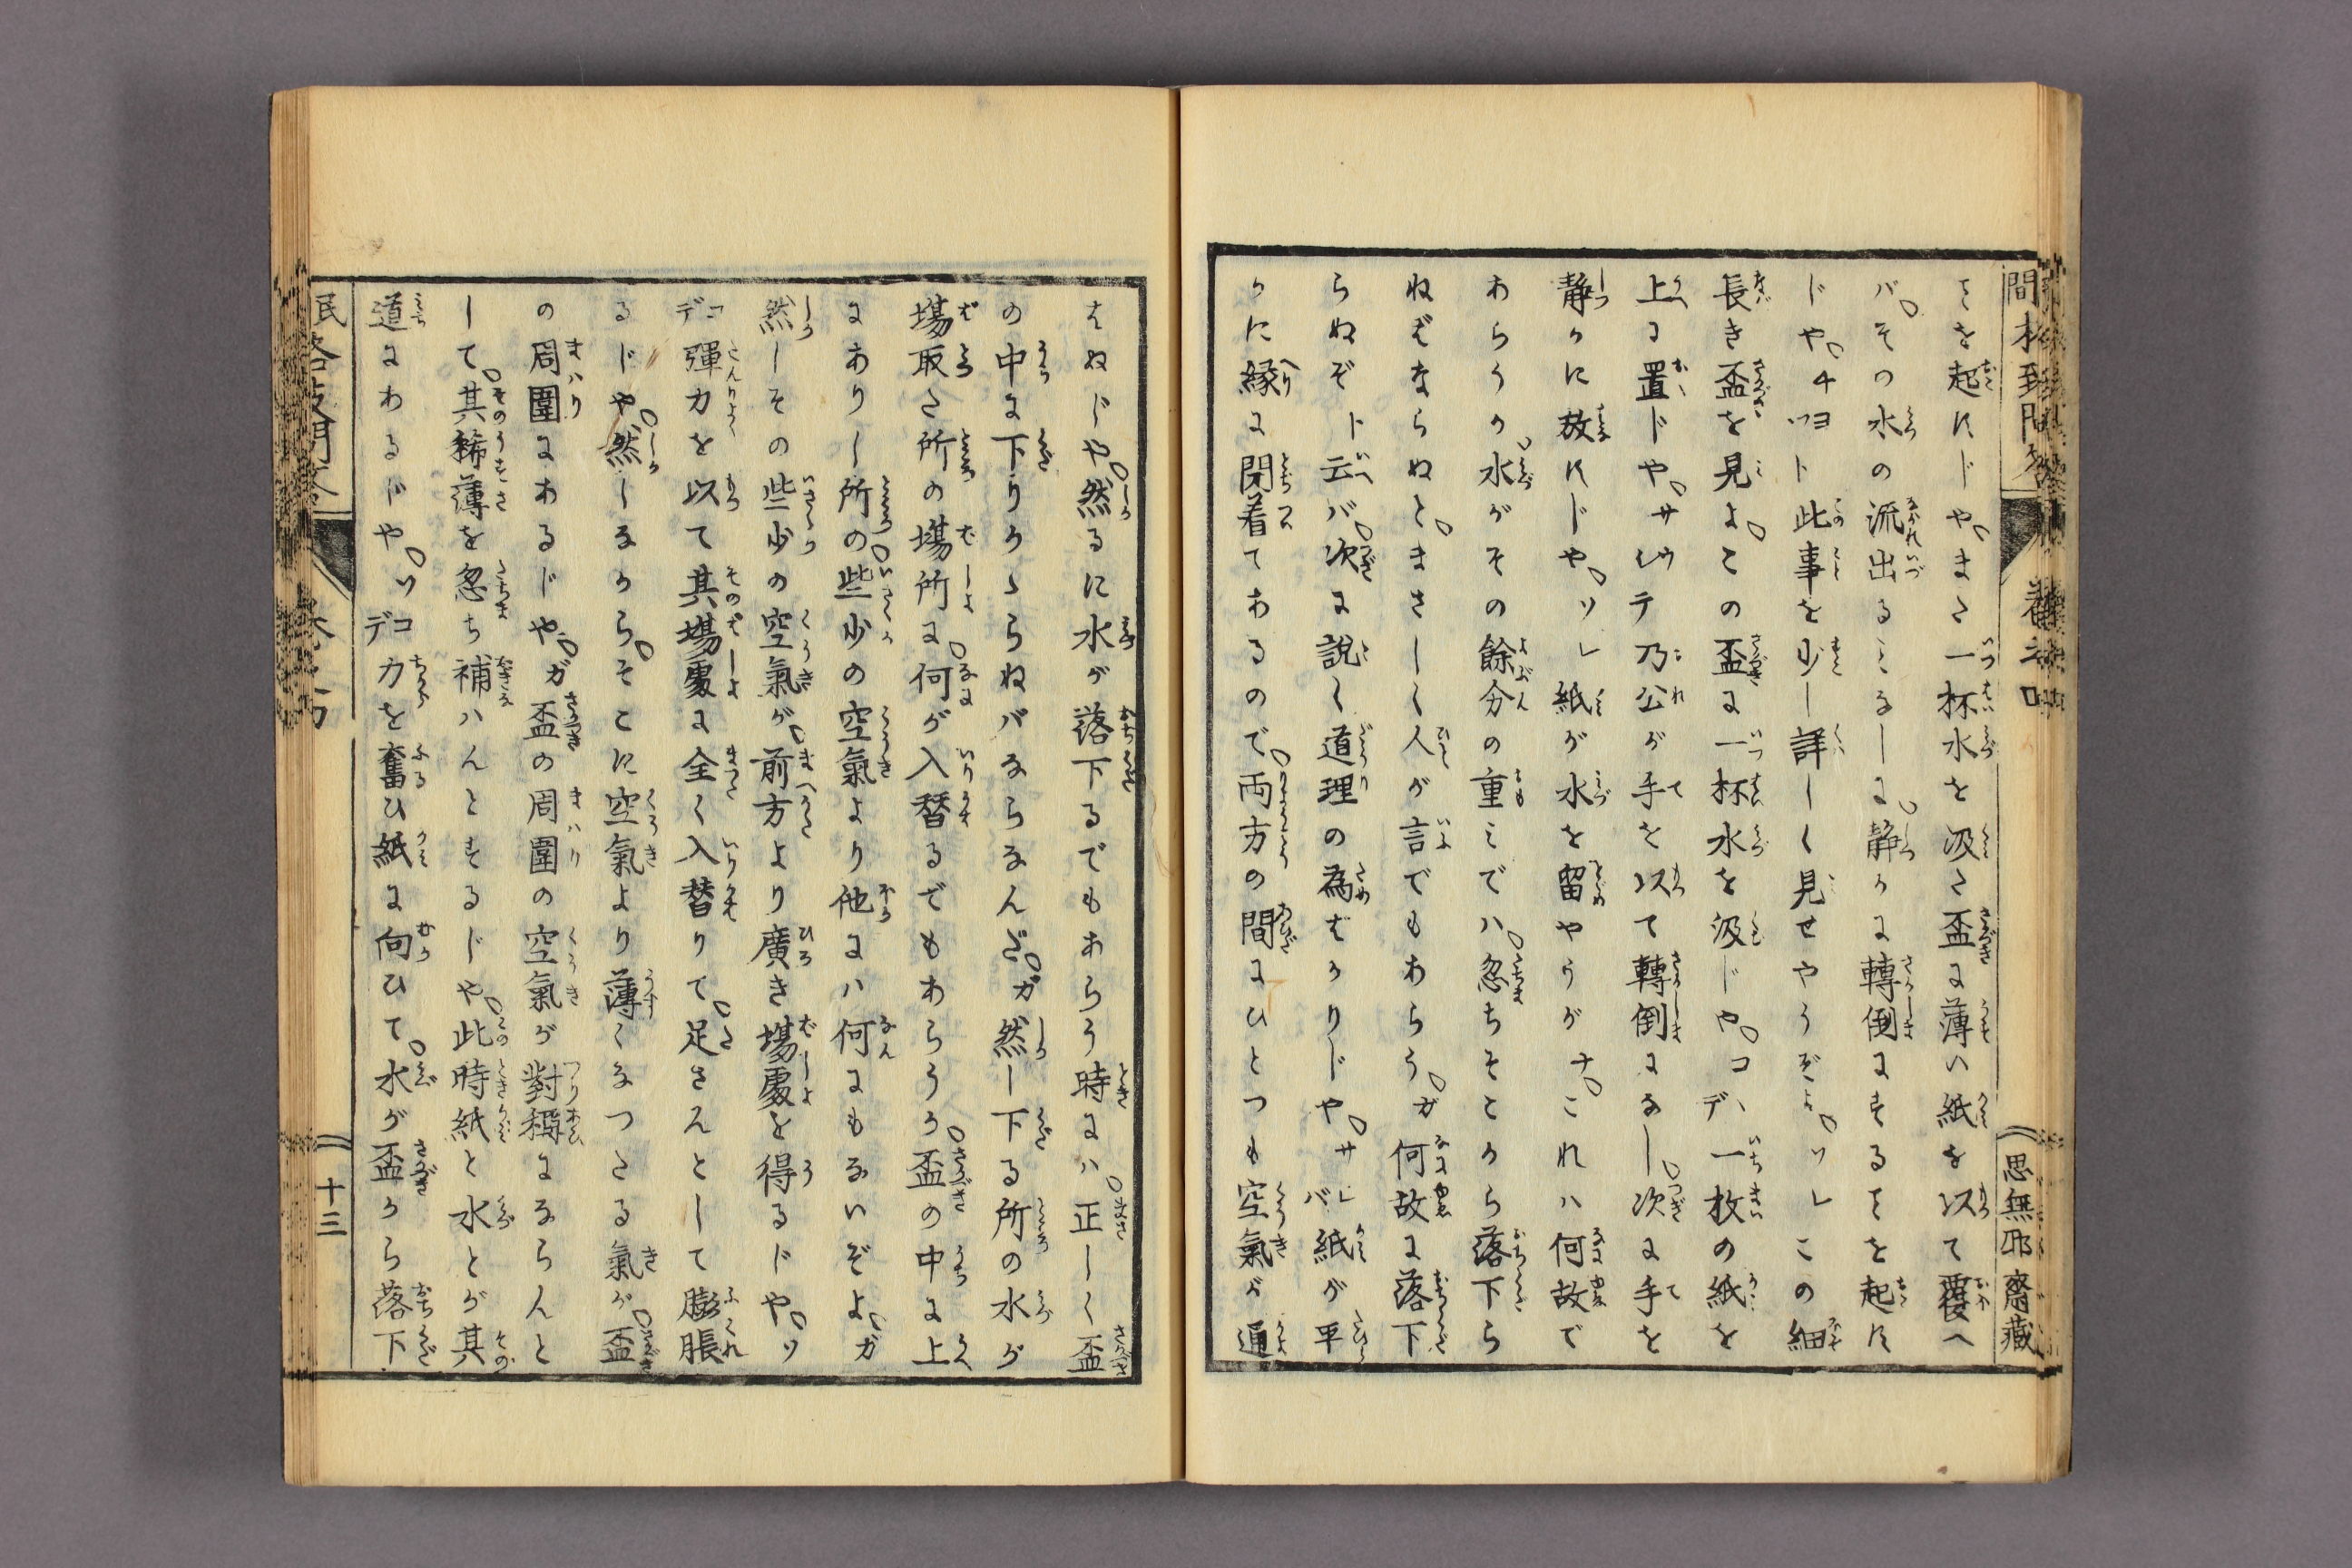 てを起スじや。また一杯水を汲た盃に薄い紙を以て覆へ
バ。その水の流出るこなしに。静かに轉倒にするてを起ス
じや。チヨツト此事を少し詳しく見せやうぞよ。ソレこの細
長き盃を見よ。この盃に一杯水を汲じや。コヽデ一枚の紙を
上に置じや。サウシテ乃公が手を以て轉倒になし。次に手を
静かに放スじや。ソレ紙が水を留やうがナ。これハ何故で
あらうか。水がその餘分の重みでハ。忽ちそこから落下ら
ねばならぬと。まさしく人が言でもあらう。ガ何故に落下
らぬぞト云バ。次に説く道理の為ばかりじや。サレバ紙が平
かに縁に閉着てあるので。両方の間にひとつも空氣が通
はぬじや。然るに水が落下るでもあらう時にハ。正しく盃
の中に下りかゝらねバならなんだ。ガ然し下る所の水が
塲取た所の塲所に。何が入替るでもあらうか。盃の中に上
にありし所の。些少の空氣より他にハ何にもないぞよ。ガ
然しその些少の空氣が。前方より廣き塲處を得るじや。ソ
コデ彈力を以て其塲處に全く入替りて。足さんとして膨脹
るじや。然しながら。そこに空氣より薄くなつたる氣が。盃
の周圍にあるじや。ガ盃の周圍の空氣が對稱にならんと
して。其稀薄を忽ち補ハんとするじや。此時紙と水とが其
道にあるじや。ソコデ力を奮ひ紙に向ひて。水が盃から落下
十三
思無邪齋藏